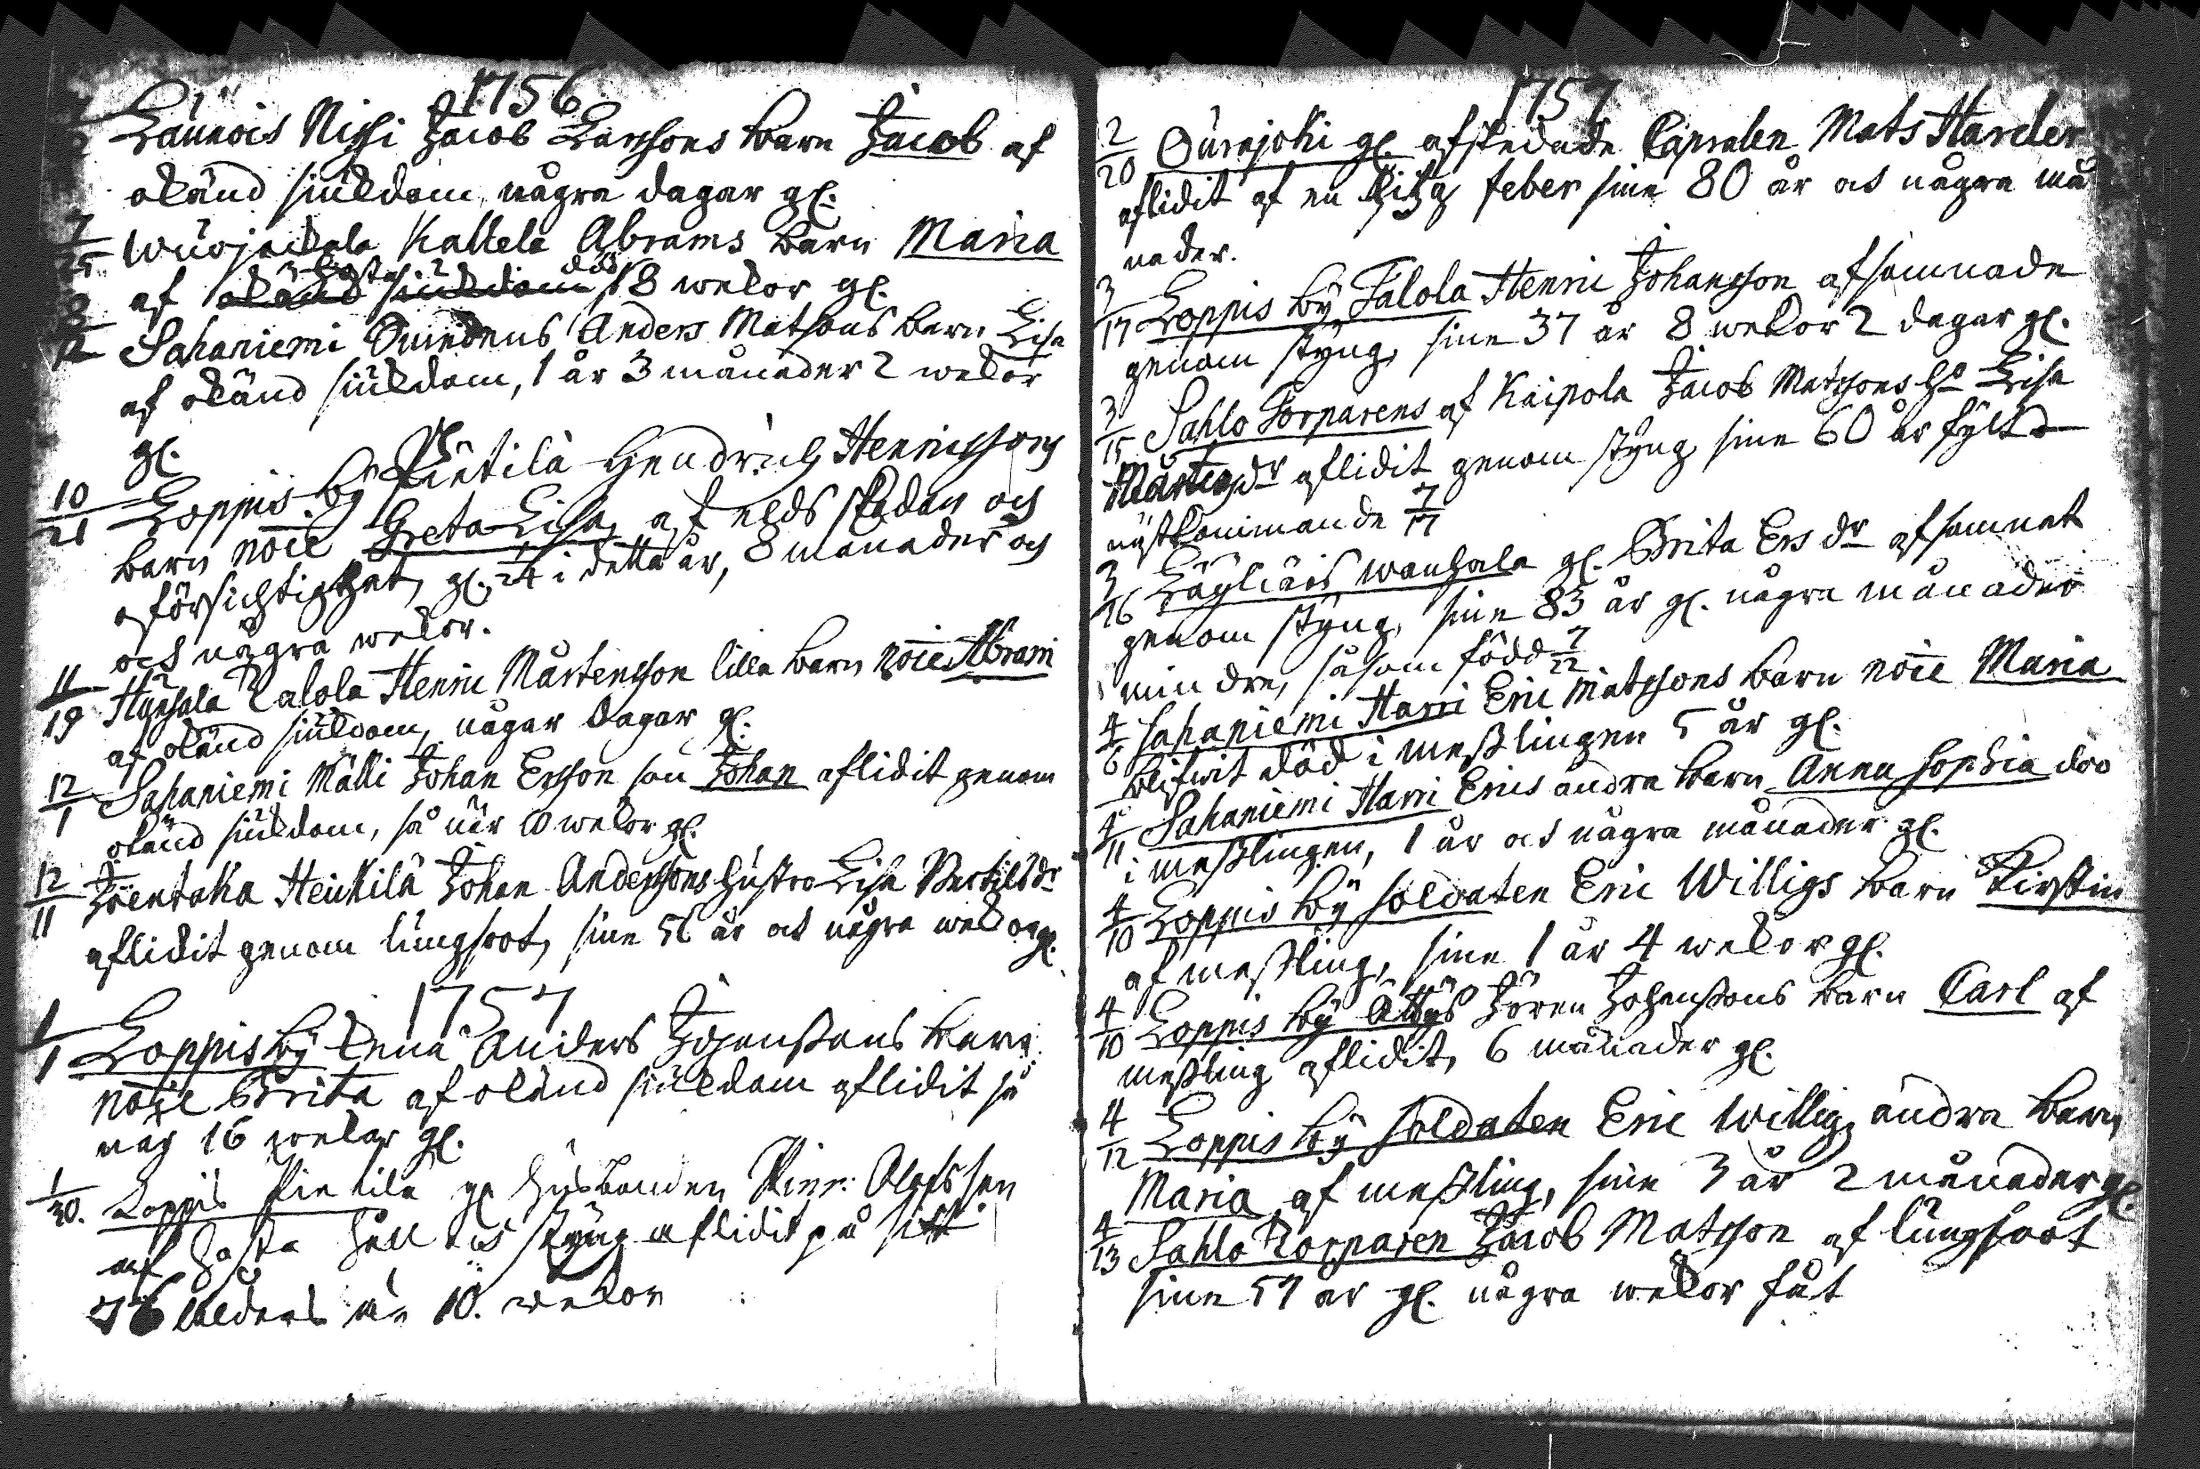 1756
Launois Nissi Jacob Larssons barn Jacob af
okänd siukdom, några dagar gl.
7 Wuojackala Kallela Abrams barn Maria
25 af okänd siukdom 18 wekor gl.
Sahaniemi Anders Matsons barn Lisa
12 af okänd siukdom, 1 år 3 månader 2 wekor
gl.
10/21 Loppis by Pietilä Hendrich Henricssons
barn noie Greta Lisa, af elds skadan och
oförsichtighet, gl. i detta år, 8 månader och
och några wekor.
11/19 Hynsala Talola Henric Mårtensson lilla barn noie Abram
af okänd siukdom, någar dagar gl.
12/1 Sahaniemi Mälli Johan Ersson son Johan aflidit genom
okänd siukdom, så när 10 wekor gl.
12/11 Joentaka Heickilä Johan Anderssons hustro Lisa Bertilsdr
aflidit genom lungsoot, sine 56 år och några wekor gl.
1757
1/1 Loppis by Anders barn
noie Brita af okänd siukdom aflidit så
när 16 wekor gl.
1/30. Loppis Pietilä gl husbonden Olofsson
af hasta håll och styng aflidit på sitt
76 ålders år 10. wekor
1757
2/20 Ourajoki gl. afskedade Capralen Mats Harder
aflidit af en hitzig feber sine 80 år och några må
nader.
3/17 Loppis by Talola Henric Johansson afsomnade
genom styng, sine 37 år 8 wekor 2 dagar gl.
3/15 Sahlo Torparens af Kaipola Jacob Matssons ho Lisa
Mårtensdr aflidit genom styng sine 60 år fylt
nästkommande 7/17
3/26 Läyliäis wanhala gl. Brita Ers dr afsomnat
genom styng, sine 83 år gl. några månader
mindre, såsom född 7/22
4/6 Sahaniemi Harri Eric Matssons barn noie Maria
blifwit död i messlingen 5 år gl.
4/11 Sahaniemi Harri Erics andra barn Anna Sophia doo
i messlingen, 1 år och några månader gl.
4/10 Loppis by soldaten Eric Willigs barn Kirstin
af messling, sine 1 år 4 wekor gl.
4/10 Loppis by Jören Johanssons barn Carl af
messling aflidit, 6 månader gl.
4/12 Loppis by soldaten Eric Willigs andra barn
Maria af messling, sine 3 år 2 månader gl.
4/13 Sahlo Torparen Jacob Matsson af lungsoot
sine 57 år gl. några wekor fåt